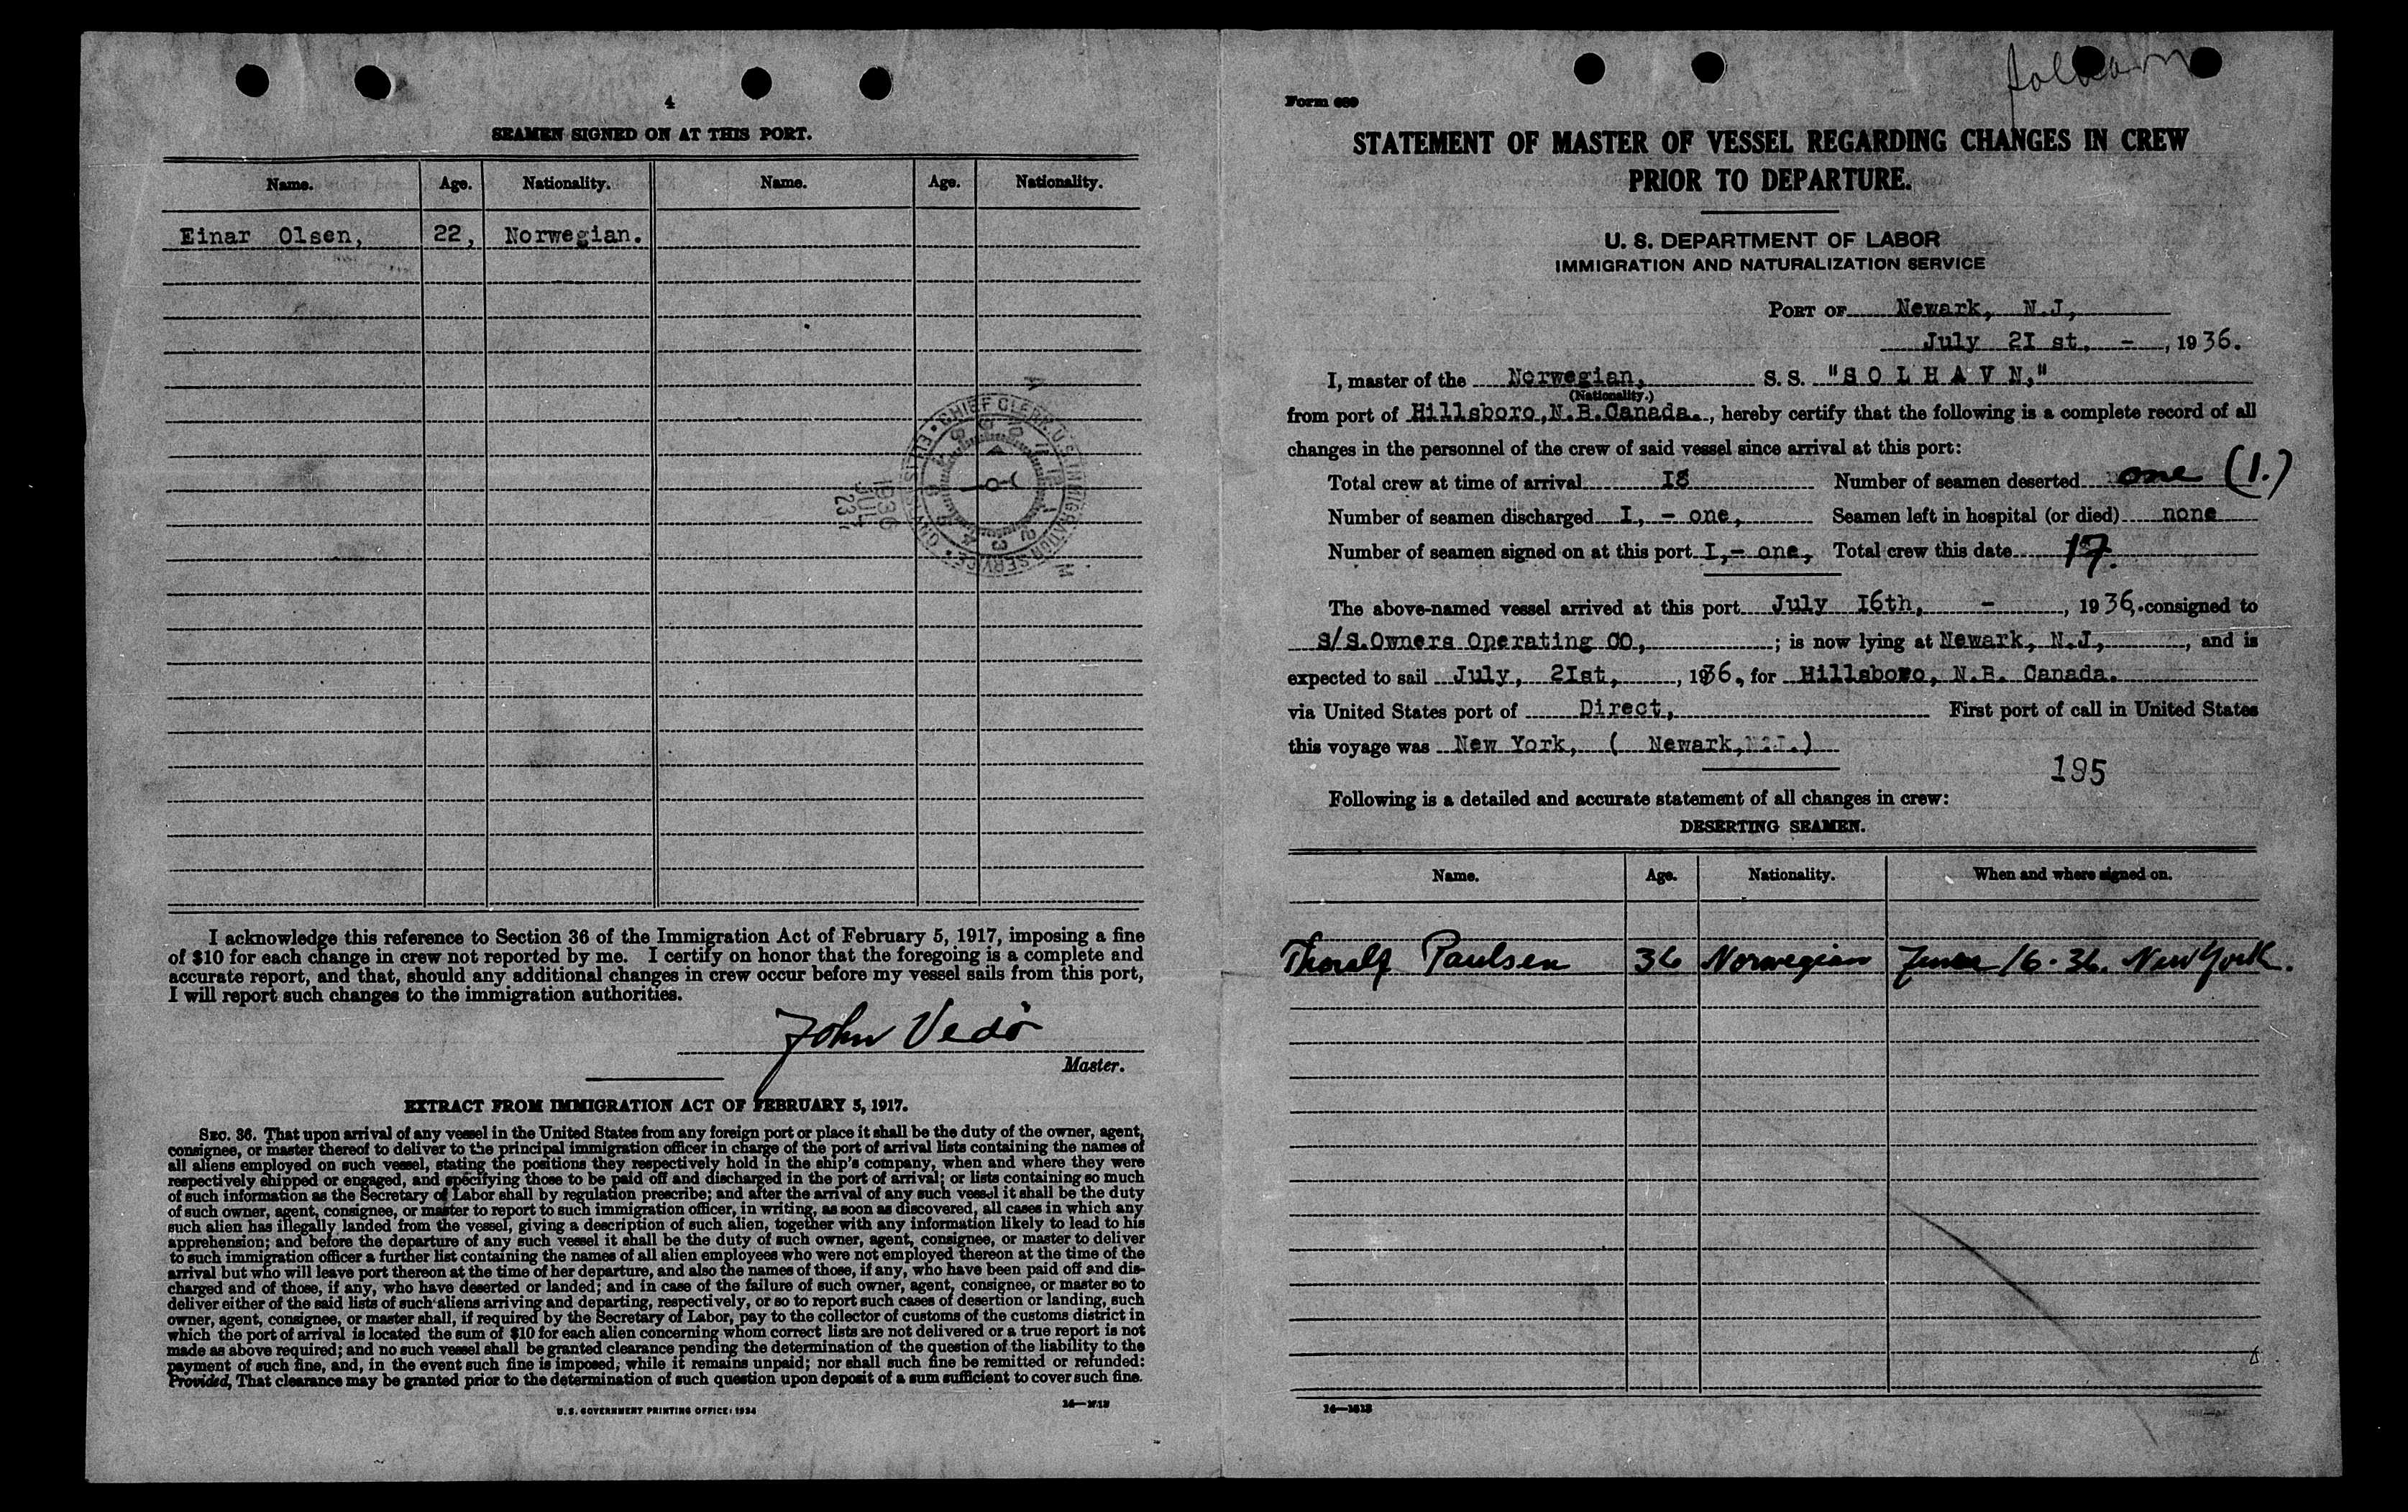 4
SEAMEN SIGNED ON AT THIS PORT.
Name. Age. Nationality. Name. Age. Nationality.
Einar Olsen, 22, Norwegian.
CHIEF CLERK U.S. IMMIGRATION SERVICE
1936
JUL
23
I acknowledge this reference to Section 36 of the Immigration Act of February 5, 1917, imposing a fine
of $10 for each change in crew not reported by me. I certify on honor that the foregoing is a complete and
accurate report, and that, should any additional changes in crew occur before my vessel sails from this port,
I will report such changes to the immigration authorities.
John Vedö
Master.
EXTRACT FROM IMMIGRATION ACT OF FEBRUARY 5, 1917.
SEC. 36. That upon arrival of any vessel in the United States from any foreign port or place it shall be the duty of the owner, agent,
consignee, or master thereof to deliver to the principal immigration officer in charge of the port of arrival lists containing the names of
all aliens employed on such vessel, stating the positions they respectively hold in the ship's company, when and where they were
respectively shipped or engaged, and specifying those to be paid off and discharged in the port of arrival; or lists containing so much
of such information as the Secretary of Labor shall by regulation prescribe; and after the arrival of any such vessel it shall be the duty
of such owner, agent, consignee, or master to report to such immigration officer, in writing, as soon as discovered, all cases in which any
such alien has illegally landed from the vessel, giving a description of such alien, together with any information likely to lead to his
apprehension; and before the departure of any such vessel it shall be the duty of such owner, agent, consignee, or master to deliver
to such immigration officer a further list containing the names of all alien employees who were not employed thereon at the time of the
arrival but who will leave port thereon at the time of her departure, and also the names of those, if any, who have been paid off and dis-
charged and of those, if any, who have deserted or landed; and in case of the failure of such owner, agent, consignee, or master so to
deliver either of the said lists of such aliens arriving and departing, respectively, or so to report such cases of desertion or landing, such
owner, agent, consignee, or master shall, if required by the Secretary of Labor, pay to the collector of customs of the customs district in
which the port of arrival is located the sum of $10 for each alien concerning whom correct lists are not delivered or a true report is not
made as above required; and no such vessel shall be granted clearance pending the determination of the question of the liability to the
payment of such fine, and, in the event such fine is imposed, while it remains unpaid; nor shall such fine be remitted or refunded:
Provided, That clearance may be granted prior to the determination of such question upon deposit of a sum sufficient to cover such fine.
U. S. GOVERNMENT PRINTING OFFICE: 1934
Form 689
STATEMENT OF MASTER OF VESSEL REGARDING CHANGES IN CREW
PRIOR TO DEPARTURE.
U. S. DEPARTMENT OF LABOR
IMMIGRATION AND NATURALIZATION SERVICE
PORT OF Newark, N.J,
July 2I st. - , 1936.
I, master of the Norwegian, S. S. "S O L H A V N,"
(Nationality.)
from port of Hillsboro,N.B.Canada., hereby certify that the following is a complete record of all
changes in the personnel of the crew of said vessel since arrival at this port:
Total crew at time of arrival I8 Number of seamen deserted one (1.)
Number of seamen discharged I, - one, Seamen left in hospital (or died) none
Number of seamen signed on at this port I,- one, Total crew this date 17.
The above-named vessel arrived at this port July I6th, - , 1936, consigned to
S/S.Owners Operating CO, ; is now lying at Newark, N.J, , and is
expected to sail July, 2Ist, , 1936, for Hillsboro, N.B. Canada.
via United States port of Direct, First port of call in United States
this voyage was New York, ( Newark,N.J.)
195
Following is a detailed and accurate statement of all changes in crew:
DESERTING SEAMEN.
Name. Age. Nationality. When and where signed on.
Thoralf Paulsen 36 Norwegian June 16-36. New York.